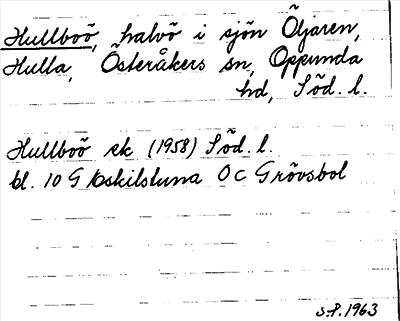 Hullboö, halvö i sjön Öljaren,
Hulla, Österåkers sn, Oppunda
hd, Söd. l.
Hullboö ek (1958) Söd. l.
bl. 10 G Eskilstuna O C Grövsbol
S.P. 1963